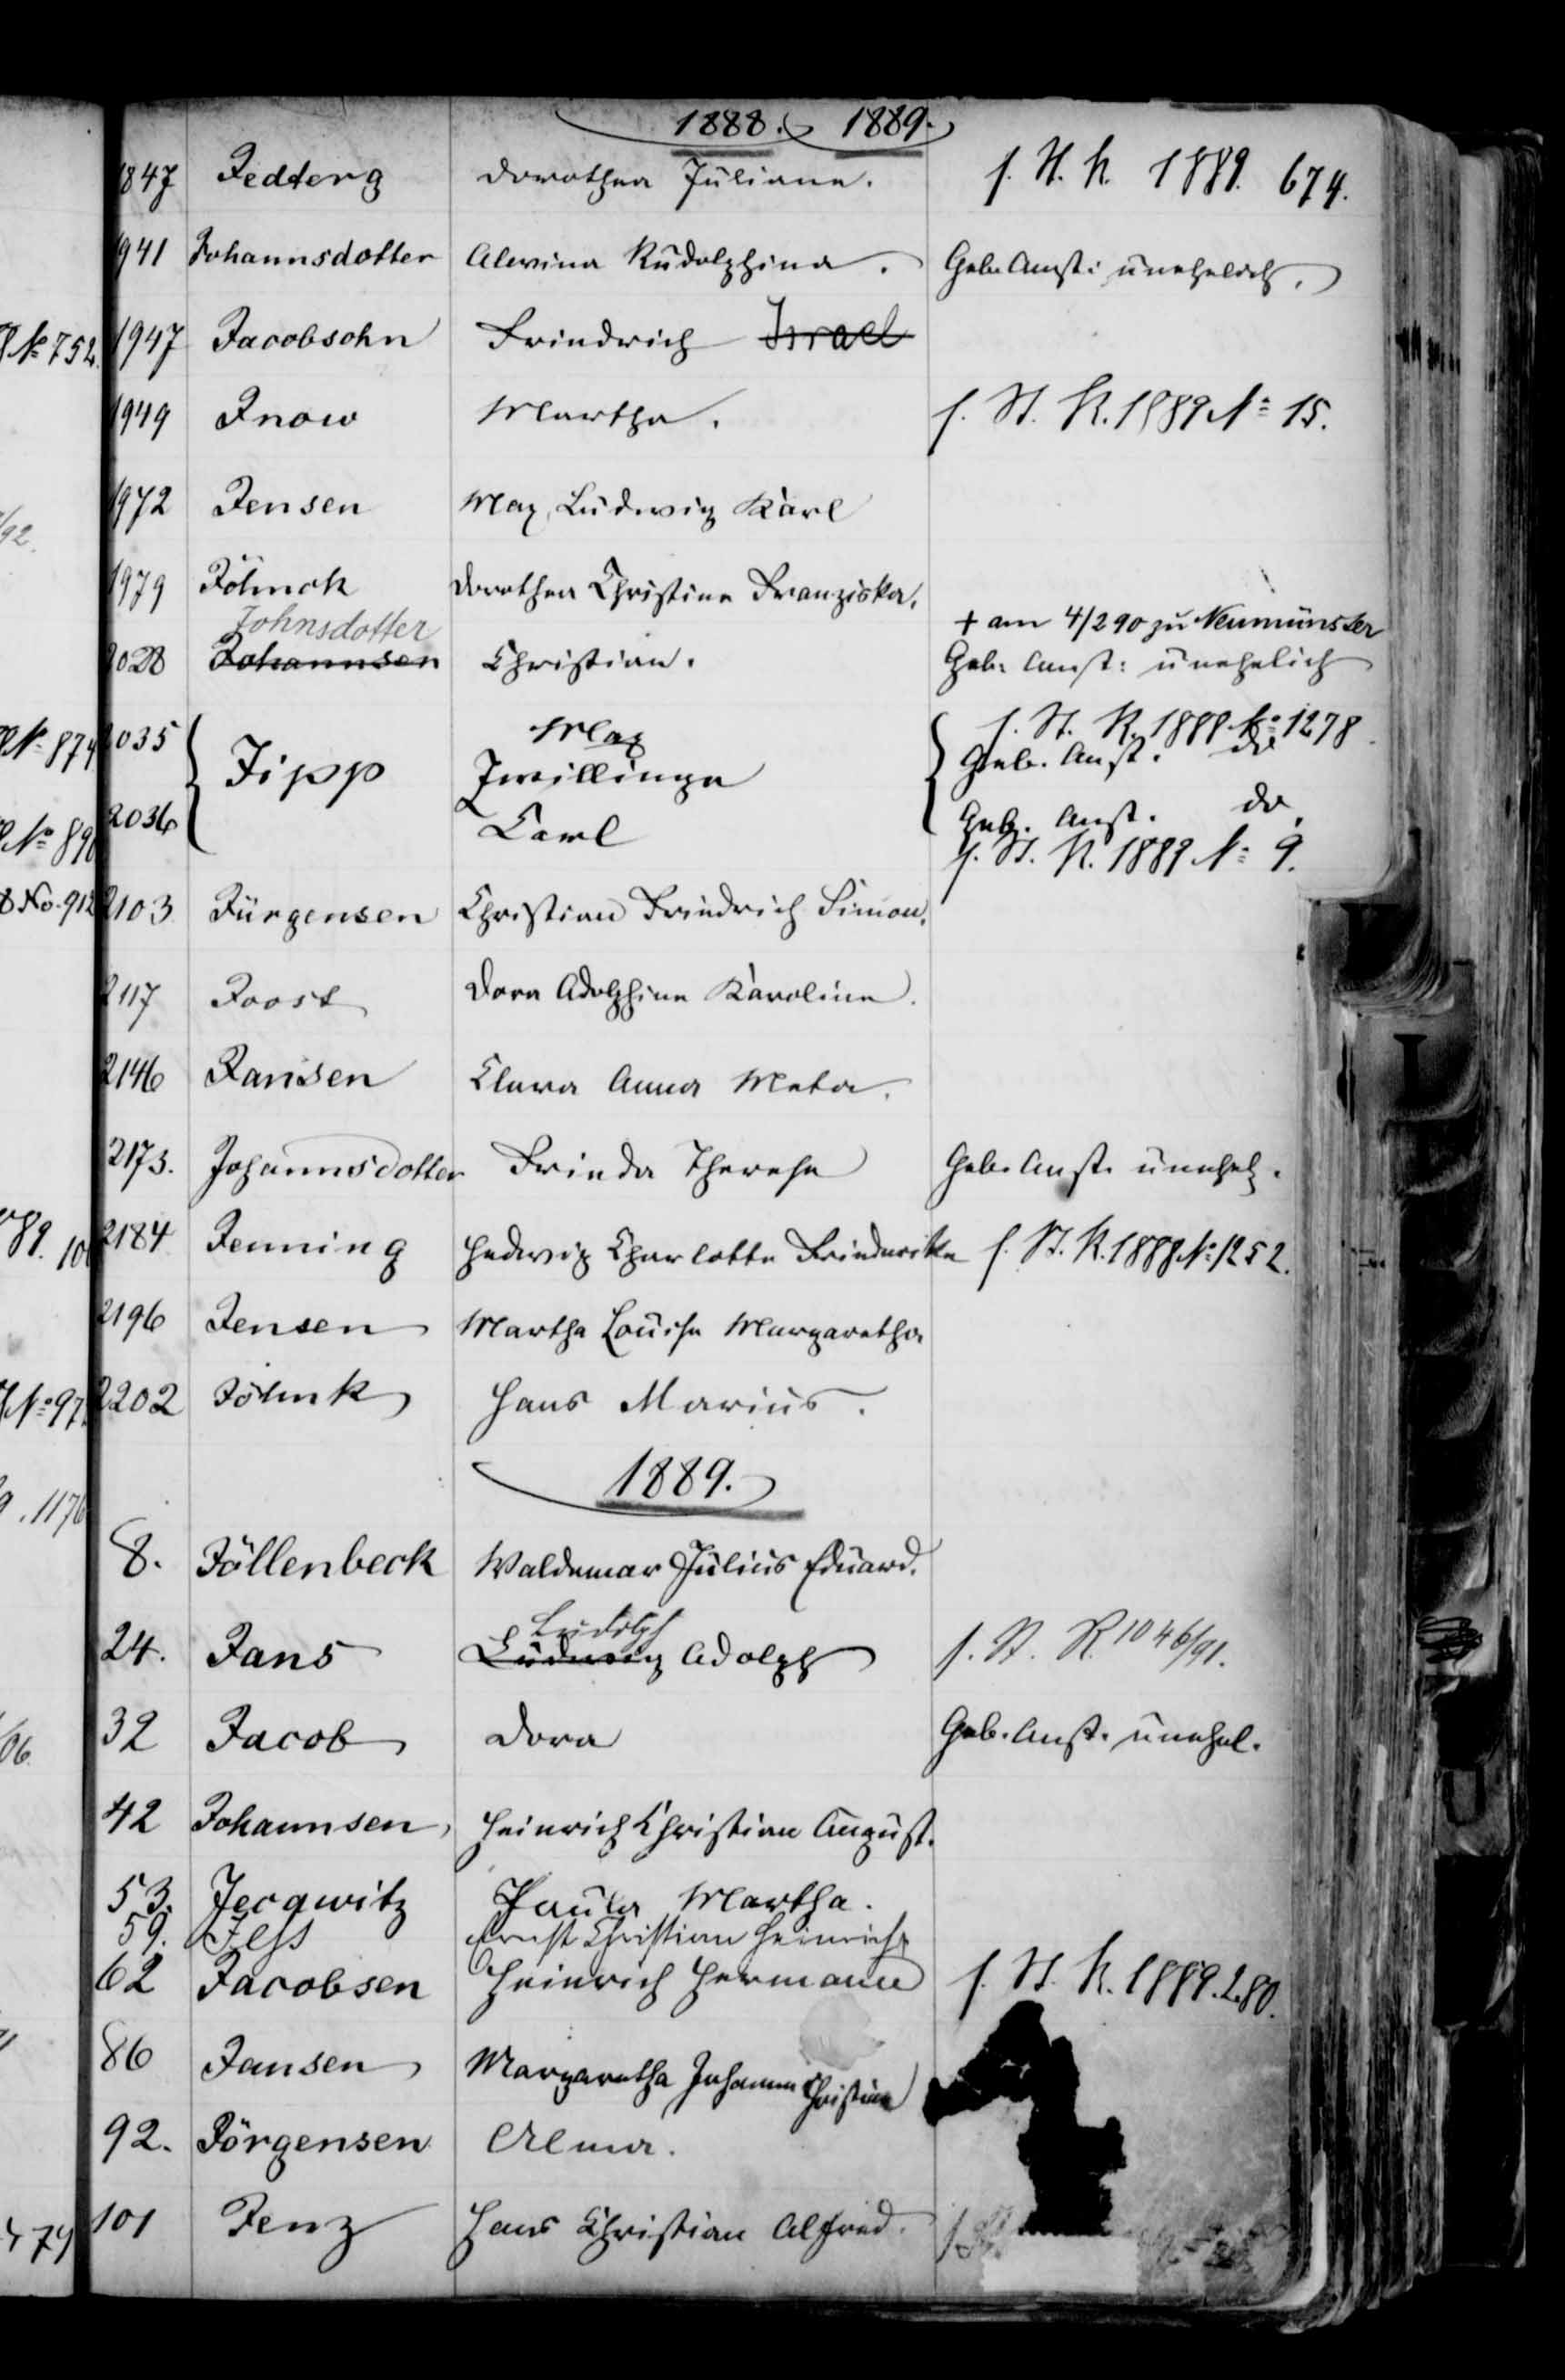 1888. 1889.
1847 Jedderg Dorothea Juliane. s. St. R. 1889. 674.
1941 Johannsdotter Alwina Rudolphina. Geb. Anst. unehelich.
№ 752. 1947 Jacobsohn Friedrich Israel
1949 Inow Martha. s. St. R. 1889 № 15.
1972 Jensen Max Ludwig Karl
1979 Jöhnck Dorothea Christine Franziska.
Johnsdotter + am 4/2 90 zu Neumünster
2028 Johannsen Christian. Geb. Anst: unehelich
№ 874 2035 Max s. St. R. 1888 № 1278.
Jipp Zwillinge Geb. Anst. do
2036 Carl Geb. Anst. do.
s. St. R. 1889 № 9.
No. 912 2103 Jürgensen Christian Friedrich Simon.
2117 Joost Dora Adolphine Karoline.
2146 Jansen Clara Anna Meta.
2173. Johannsdotter Frieda Therese Geb. Anst. unehel.
2184 Jenning Hedwig Charlotte Friederike s. St. R. 1888 № 1252.
2196 Jensen Martha Louise Margaretha
2202 Jöhnk Hans Marius.
1889.
8. Jöllenbeck Waldemar Julius Eduard.
Ludolph
24. Jans Ludwig Adolph s. St. R. 1046/91.
32 Jacob Dora Geb. Anst. unehel.
42 Johannsen, Heinrich Christian August.
53. Jecqwitz Paula Martha.
59. Jess Ernst Christian Heinrich
62 Jacobsen Heinrich Hermann s. St. R. 1889. 280.
86 Jansen Margaretha Johanna Christine
92. Jörgensen Alma.
101 Jenz Hans Christian Alfred.
I